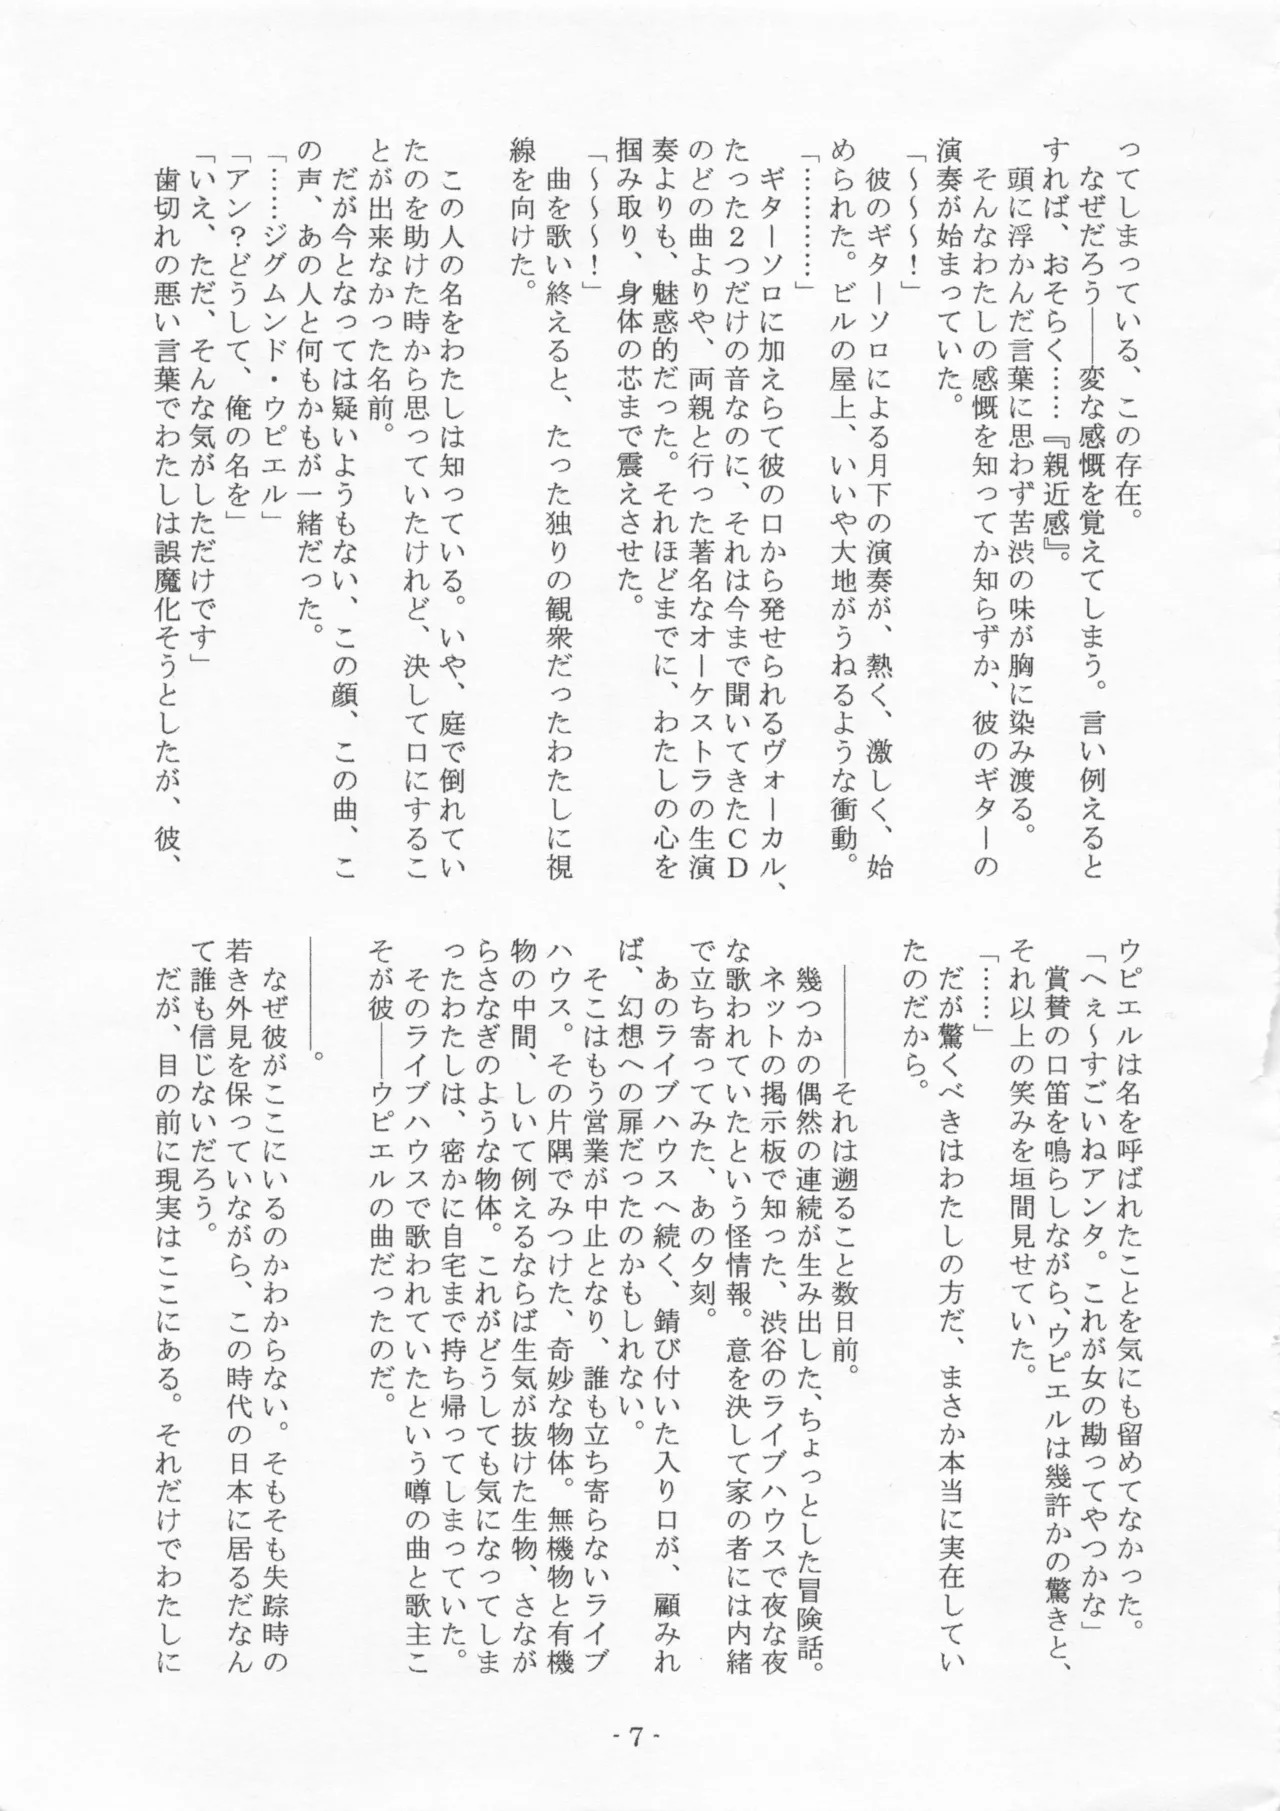 ってしまっている、この存在。
なぜだろう――変な感慨を覚えてしまう。言い例えると
すれば、おそらく……『親近感』。
頭に浮かんだ言葉に思わず苦渋の味が胸に染み渡る。
そんなわたしの感慨を知ってか知らずか、彼のギターの
演奏が始まっていた。
「～～～！」
彼のギターソロによる月下の演奏が、熱く、激しく、始
められた。ビルの屋上、いいや大地がうねるような衝動。
「…………」
ギターソロに加えらて彼の口から発せられるヴォーカル、
たった２つだけの音なのに、それは今まで聞いてきたＣＤ
のどの曲よりや、両親と行った著名なオーケストラの生演
奏よりも、魅惑的だった。それほどまでに、わたしの心を
掴み取り、身体の芯まで震えさせた。
「～～～！」
曲を歌い終えると、たった独りの観衆だったわたしに視
線を向けた。
この人の名をわたしは知っている。いや、庭で倒れてい
たのを助けた時から思っていたけれど、決して口にするこ
とが出来なかった名前。
だが今となっては疑いようもない、この顔、この曲、こ
の声、あの人と何もかもが一緒だった。
「……ジグムンド・ウピエル」
「アン？どうして、俺の名を」
「いえ、ただ、そんな気がしただけです」
歯切れの悪い言葉でわたしは誤魔化そうとしたが、彼、
ウピエルは名を呼ばれたことを気にも留めてなかった。
「へぇ～すごいねアンタ。これが女の勘ってやつかな」
賞賛の口笛を鳴らしながら、ウピエルは幾許かの驚きと、
それ以上の笑みを垣間見せていた。
「……」
だが驚くべきはわたしの方だ、まさか本当に実在してい
たのだから。
――――それは遡ること数日前。
幾つかの偶然の連続が生み出した、ちょっとした冒険話。
ネットの掲示板で知った、渋谷のライブハウスで夜な夜
な歌われていたという怪情報。意を決して家の者には内緒
で立ち寄ってみた、あの夕刻。
あのライブハウスへ続く、錆び付いた入り口が、顧みれ
ば、幻想への扉だったのかもしれない。
そこはもう営業が中止となり、誰も立ち寄らないライブ
ハウス。その片隅でみつけた、奇妙な物体。無機物と有機
物の中間、しいて例えるならば生気が抜けた生物、さなが
らさなぎのような物体。これがどうしても気になってしま
ったわたしは、密かに自宅まで持ち帰ってしまっていた。
そのライブハウスで歌われていたという噂の曲と歌主こ
そが彼――ウピエルの曲だったのだ。
――――。
なぜ彼がここにいるのかわからない。そもそも失踪時の
若き外見を保っていながら、この時代の日本に居るだなん
て誰も信じないだろう。
だが、目の前に現実はここにある。それだけでわたしに
- 7 -